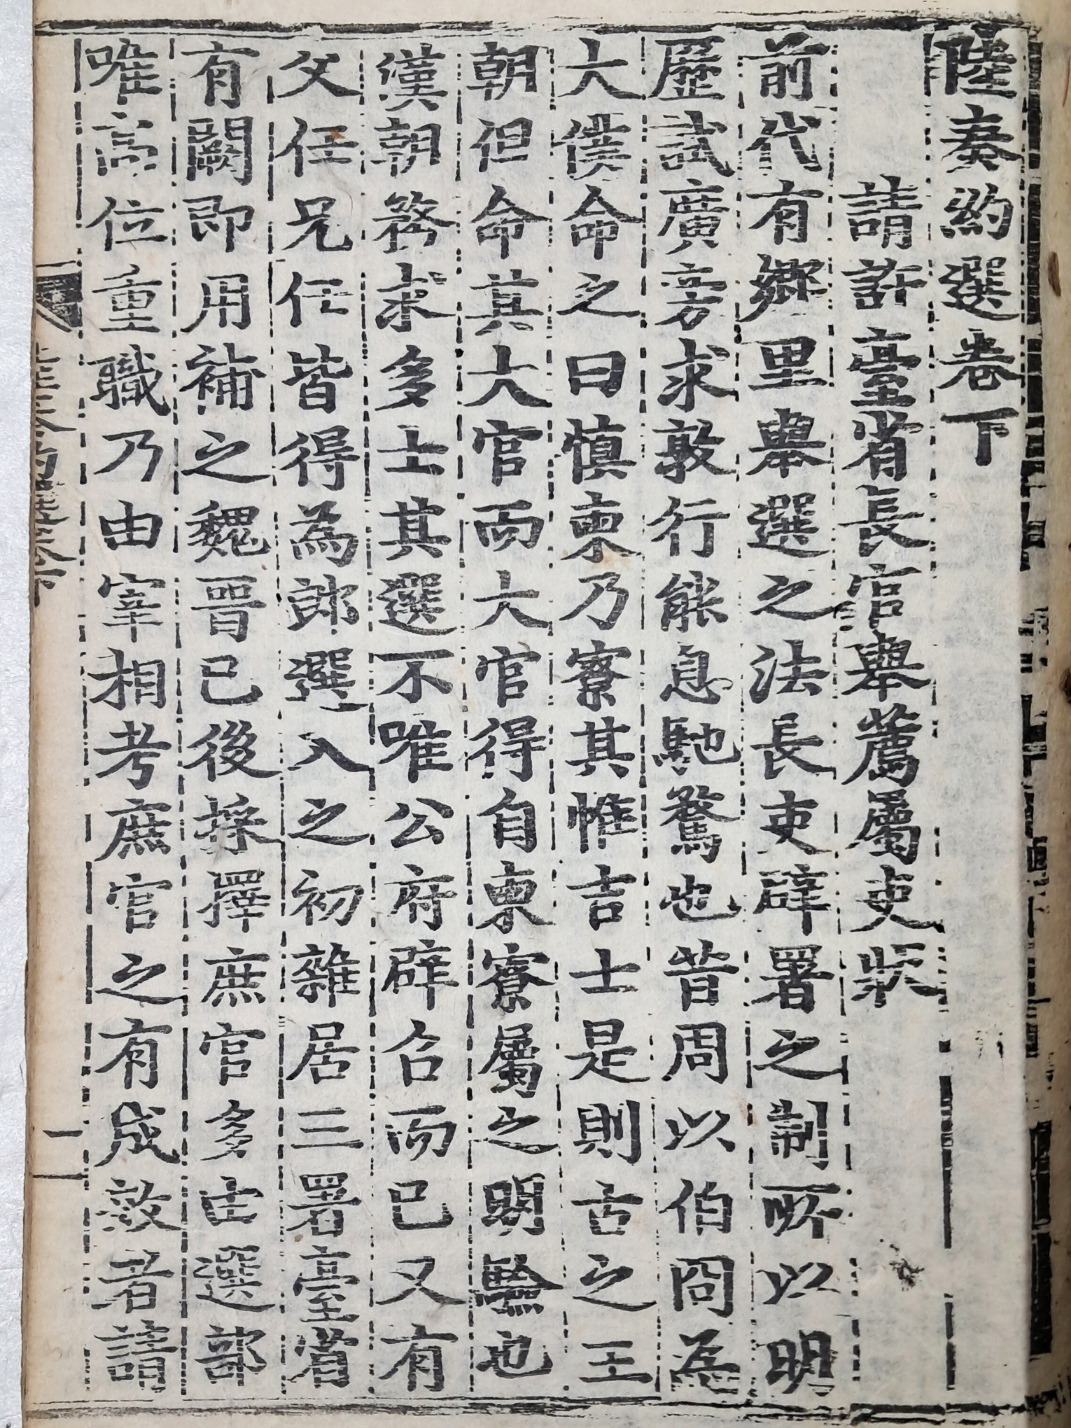 陸奏約選卷下
請許臺省長官舉薦屬吏狀
前代有鄉里舉選之法長吏辟署之制所以明
歷試廣旁求敦行能息馳騖也昔周以伯冏為
大僕命之曰慎柬乃寮其惟吉士是則古之王
朝但命其大官而大官得自柬寮屬之明驗也
漢朝務求多士其選不唯公府辟召而已又有
父任兄任皆得為郎選入之初雜居三署臺省
有闕即用補之魏晉已後採擇庶官多由選部
唯高位重職乃由宰相考庶官之有成效者請
陸奏約選卷下
一